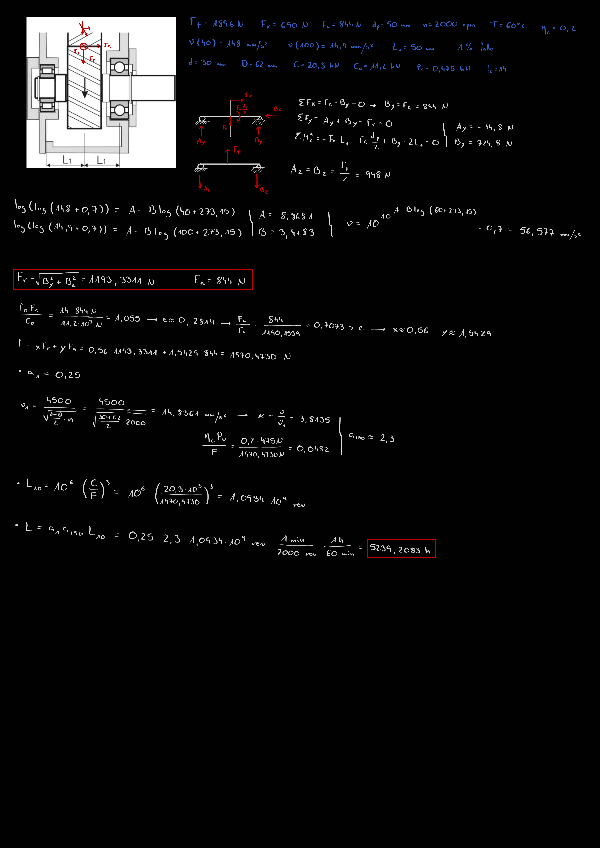 F_t = 1896 N F_r = 690 N F_a = 844 N d_p = 50 mm n = 2000 rpm T = 60°C η_c = 0,2
ν(40) = 148 mm²/s ν(100) = 14,4 mm²/s L_1 = 50 mm 1%
d = 30 mm D = 62 mm C = 20,3 kN C_0 = 11,2 kN P_u = 0,475 kN f_0 = 14
ΣF_x = F_a - B_x = 0 → B_x = F_a = 844 N
ΣF_y = A_y + B_y - F_r = 0
A_y = - 34,8 N
B_y = 724,8 N
A_z = B_z = F_t/2 = 948 N
log(log(148+0,7)) = A - B log(40+273,15)
log(log(14,4+0,7)) = A - B log(100+273,15)
A = 8,9681
B = 3,4183
ν = 10^10^(A - B log(60+273,15)) - 0,7 = 56,577 mm²/s
F_r = √(B_y² + B_z²) = 1193,3311 N F_a = 844 N
f_0 F_a / C_0 = 14·844 N / 11,2·10³ N = 1,055 → e ≈ 0,2814 → F_a/F_r = 844 / = 0,7073 > e → x ≈ 0,56 y ≈ 1,5429
F = x F_r + y F_a = 0,56·1193,3311 + 1,5429·844 = 1970,4730 N
• a_1 = 0,25
ν_1 = 4500 / = 4500 / = 14,8361 mm²/s → κ = ν/ν_1 = 3,8135
η_c P_u / F = 0,2·475 N / 1970,4730 N = 0,0482
a_ISO ≈ 2,3
• L_10 = 10⁶ (C/F)³ = 10⁶ (20,3·10³ / 1970,4730)³ = 1,0934·10⁹ rev
• L = a_1 a_ISO L_10 = 0,25·2,3·1,0934·10⁹ rev · 1 min / 2000 rev · 1h / 60 min = 5239,2083 h
L1 L1